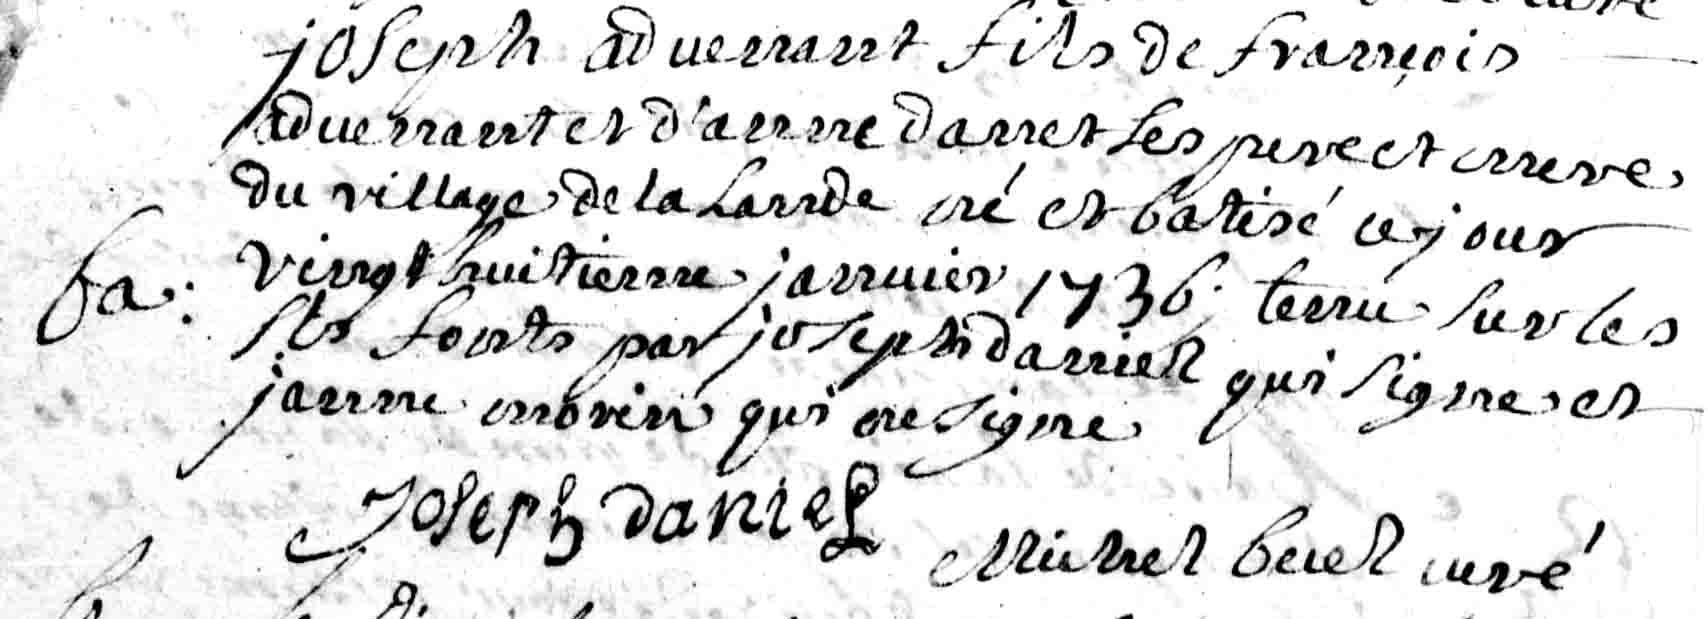 joseph aduenant fils de françois
aduenant et d'anne danet ses pere et mere
du village de la Lande né et batisé ce jour
ba: vingt huitieme januier 1736. tenu sur les
sts fonts par joseph daniel qui signe et
janne morin qui ne signe
Joseph daniel
Michel curé